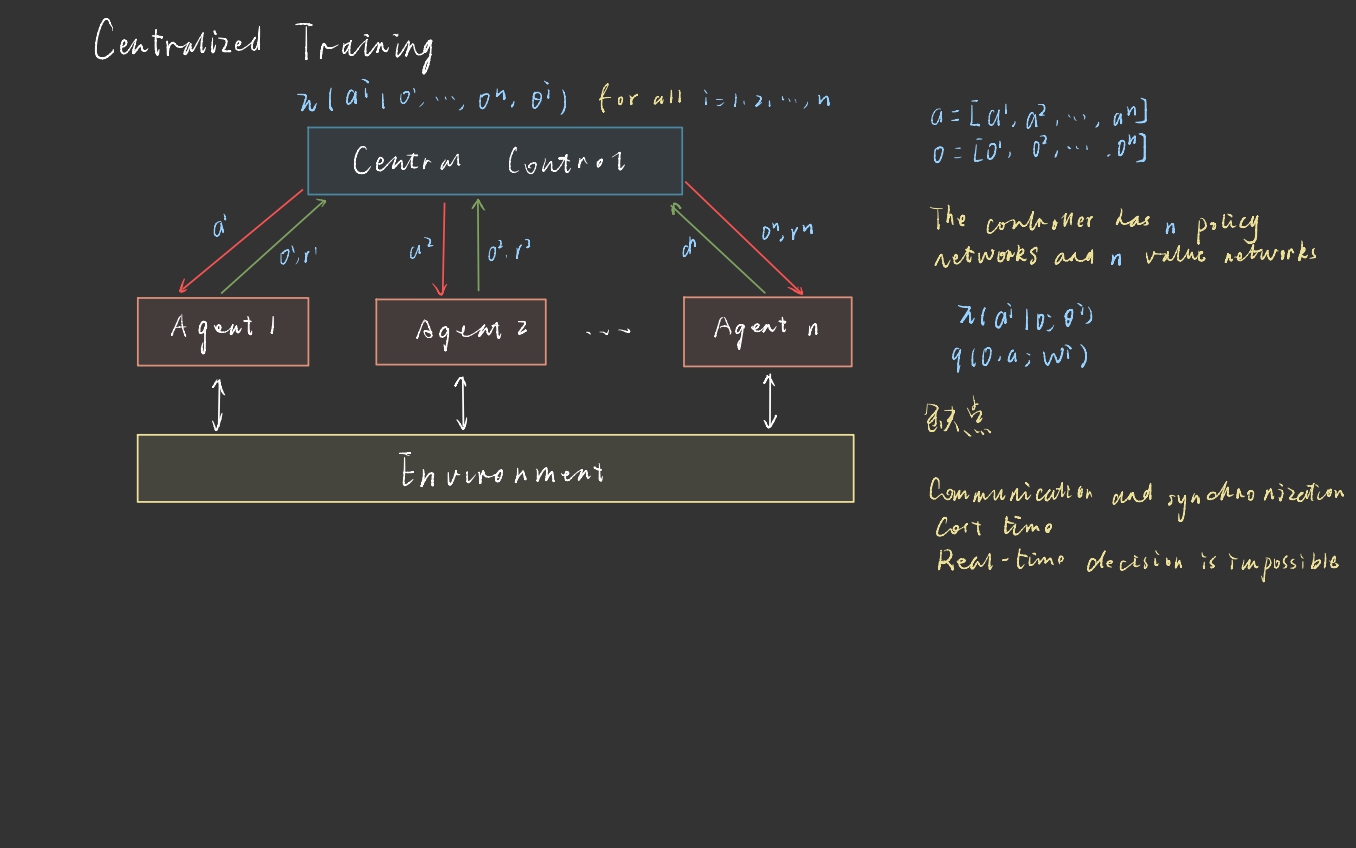 Centralized Training
π(aⁱ | o¹, ..., oⁿ, θⁱ) for all i=1, 2, ..., n
Central Control
a¹
o¹, r¹
a²
o², r²
aⁿ
oⁿ, rⁿ
Agent 1
Agent 2
...
Agent n
Environment
a = [a¹, a², ..., aⁿ]
o = [o¹, o², ..., oⁿ]
The controller has n policy
networks and n value networks
π(aⁱ | o; θⁱ)
q(o, a; wⁱ)
缺点
Communication and synchronization
Cost time
Real-time decision is impossible